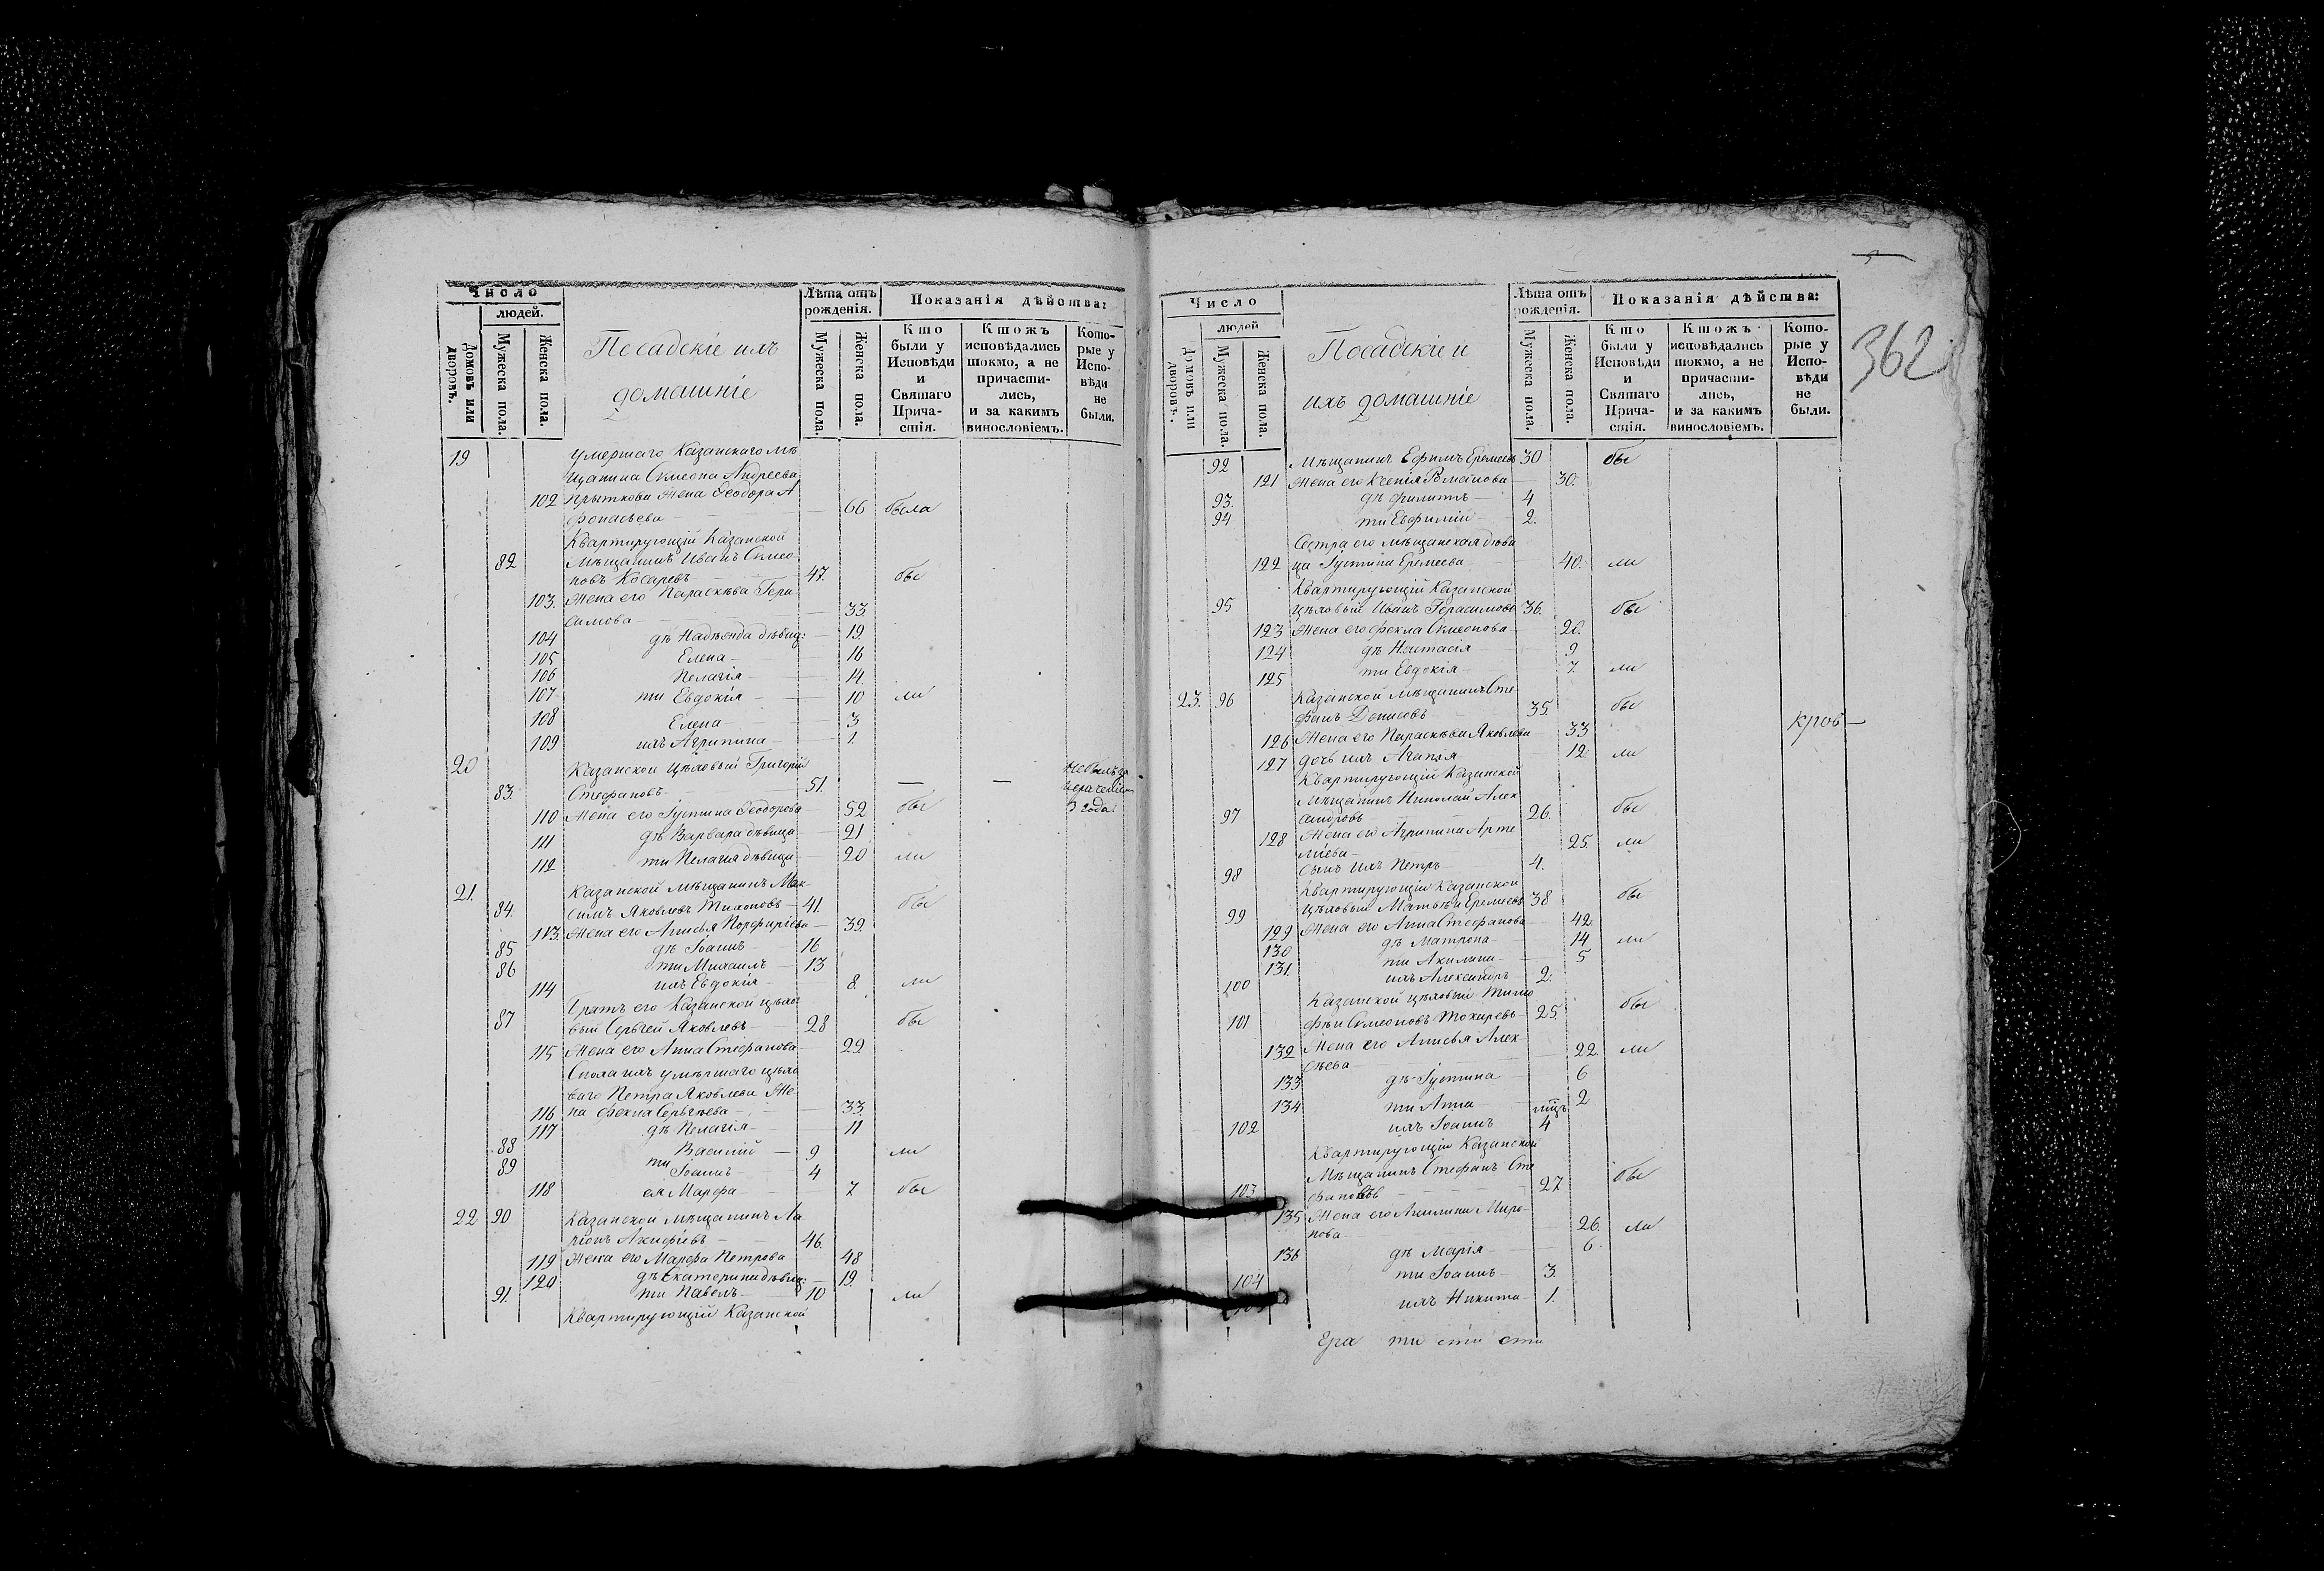 Число
людей.
Домовъ или дворовъ.
Мужеска пола.
Женска пола.
Посадскіе ихъ
домашніе
Лѣта отъ рожденія.
Мужеска пола.
Женска пола.
Показанія дѣйства:
Кто были у Исповѣди и Святаго Причастія.
Ктожъ исповѣдались токмо, а не причастились, и за какимъ винословіемъ.
Которые у Исповѣди не были.
19 умершаго Казанскаго мѣ
щанина Симеона Андреева
102 Прыткова жена Ѳеодора А
фонасьева 66 была
Квартирующій Казанской
82 Мѣщанинъ Иванъ Симео
новъ Косаревъ 47. бы
103. Жена его Параскѣва Гера
симова 33.
104 дѣ Надежда дѣвиц: 19.
105 Елена 16
106 Пелагія 14.
107 ти Евдокія 10 ли
108 Елена 3
109 ихъ Агрипина 1.
20 Казанской цѣховый Григорій
83. Стефановъ 51. — —
110 Жена его Іустина Ѳеодорова 52 бы 3 года.
111 дѣ Варвара дѣвица 21
112 ти Пелагія дѣвица 20 ли
21. Казанской мѣщанинъ Мак-
84. симъ Яковлевъ Тихоновъ 41. бы
113. Жена его Анисья Порфиріева 39.
85 дѣ Іоаннъ 16
86 ти Михаилъ 13
114 ихъ Евдокія 8. ли
Братъ его Казанской цѣхо
87 вый Сергѣй Яковлевъ 28 бы
115 Жена его Анна Стефанова 29
Сноха ихъ умершаго цѣхо
ваго Петра Яковлева Же
116 на Фекла Сергѣева 33.
117 дѣ Пелагія 11
88 Василій 9 ли
89 ти Іоаннъ 4
118 ея Марфа 7 бы
22 90 Казанской мѣщанинъ Ла
ріонъ Акифіевъ 46.
119 Жена его Марфа Петрова 48
120 дѣ Екатерина дѣвиц: 19.
91. ти Павелъ 10 ли
Квартирующій Казанской
362
Число
людей
Домовъ или дворовъ.
Мужеска пола.
Женска пола.
Посадскіе и
ихъ домашніе
Лѣта отъ рожденія.
Мужеска пола.
Женска пола.
Показанія дѣйства:
Кто были у Исповѣди и Святаго Причастія.
Ктожъ исповѣдались токмо, а не причастились, и за какимъ винословіемъ.
Которые у Исповѣди не были.
92 Мѣщанинъ Ефимъ Еремеевъ 30 бы
121 Жена его Ксенія Романова 30.
93. дѣ Филипъ 4
94 ти Евфимій 2.
Сестра его мѣщанская дѣви
122 ца Іустина Еремеева 40. ли
Квартирующій Казанской
95 цѣховый Иванъ Герасимовъ 36. бы
123 Жена его Фекла Симеонова 26.
124 дѣ Настасія 9
125 ти Евдокія 7. ли
23. 96 Казанской мѣщанинъ Сте
фанъ Денисовъ 35. бы
126 Жена его Параскѣва Яковлева 33
127 дочь ихъ Агапія 12 ли
Квартирующій Казанской
Мѣщанинъ Николай Алек
97 сандровъ 26. бы
128 Жена его Агрипина Арте
міева 25. ли
98 Сынъ ихъ Петръ 4.
Квартирующій Казанской
99 цѣховый Матвѣй Еремеевъ 38 бы
129 Жена его Анна Стефанова 42.
130 дѣ Матрона 14 ли
131. ти Акилина 5
100 ихъ Александръ 2.
Казанской цѣховый Тимо
101 фѣй Симеоновъ Токаревъ 25. бы
132 Жена его Анисья Алек
сѣева 22 ли
133 дѣ Іустина 6
134 ти Анна 2
102 ихъ Іоаннъ 4
Квартирующій Казанской
Мѣщанинъ Стефанъ Сте
103 фановъ 27. бы
135 Жена его Акилина Миро-
нова 26. ли
136 дѣ Марія 6.
104 ти Іоаннъ 3.
ихъ Никита 1.